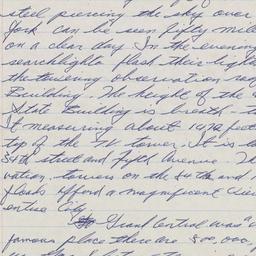 steel piercing the sky over
York can be seen fifty mile
on a clear day In the evening
searchlights flash their light
the towering observation
Building. The height of the
State Building is breath-t
it measuring about 1472 feet
top of the TV tower. It is lo
34th street and fifth Avenue. Th
vation towers on the 84th and
floors afford a magnificent view
entire City.
Grand Central was a
famous place there are 500,000